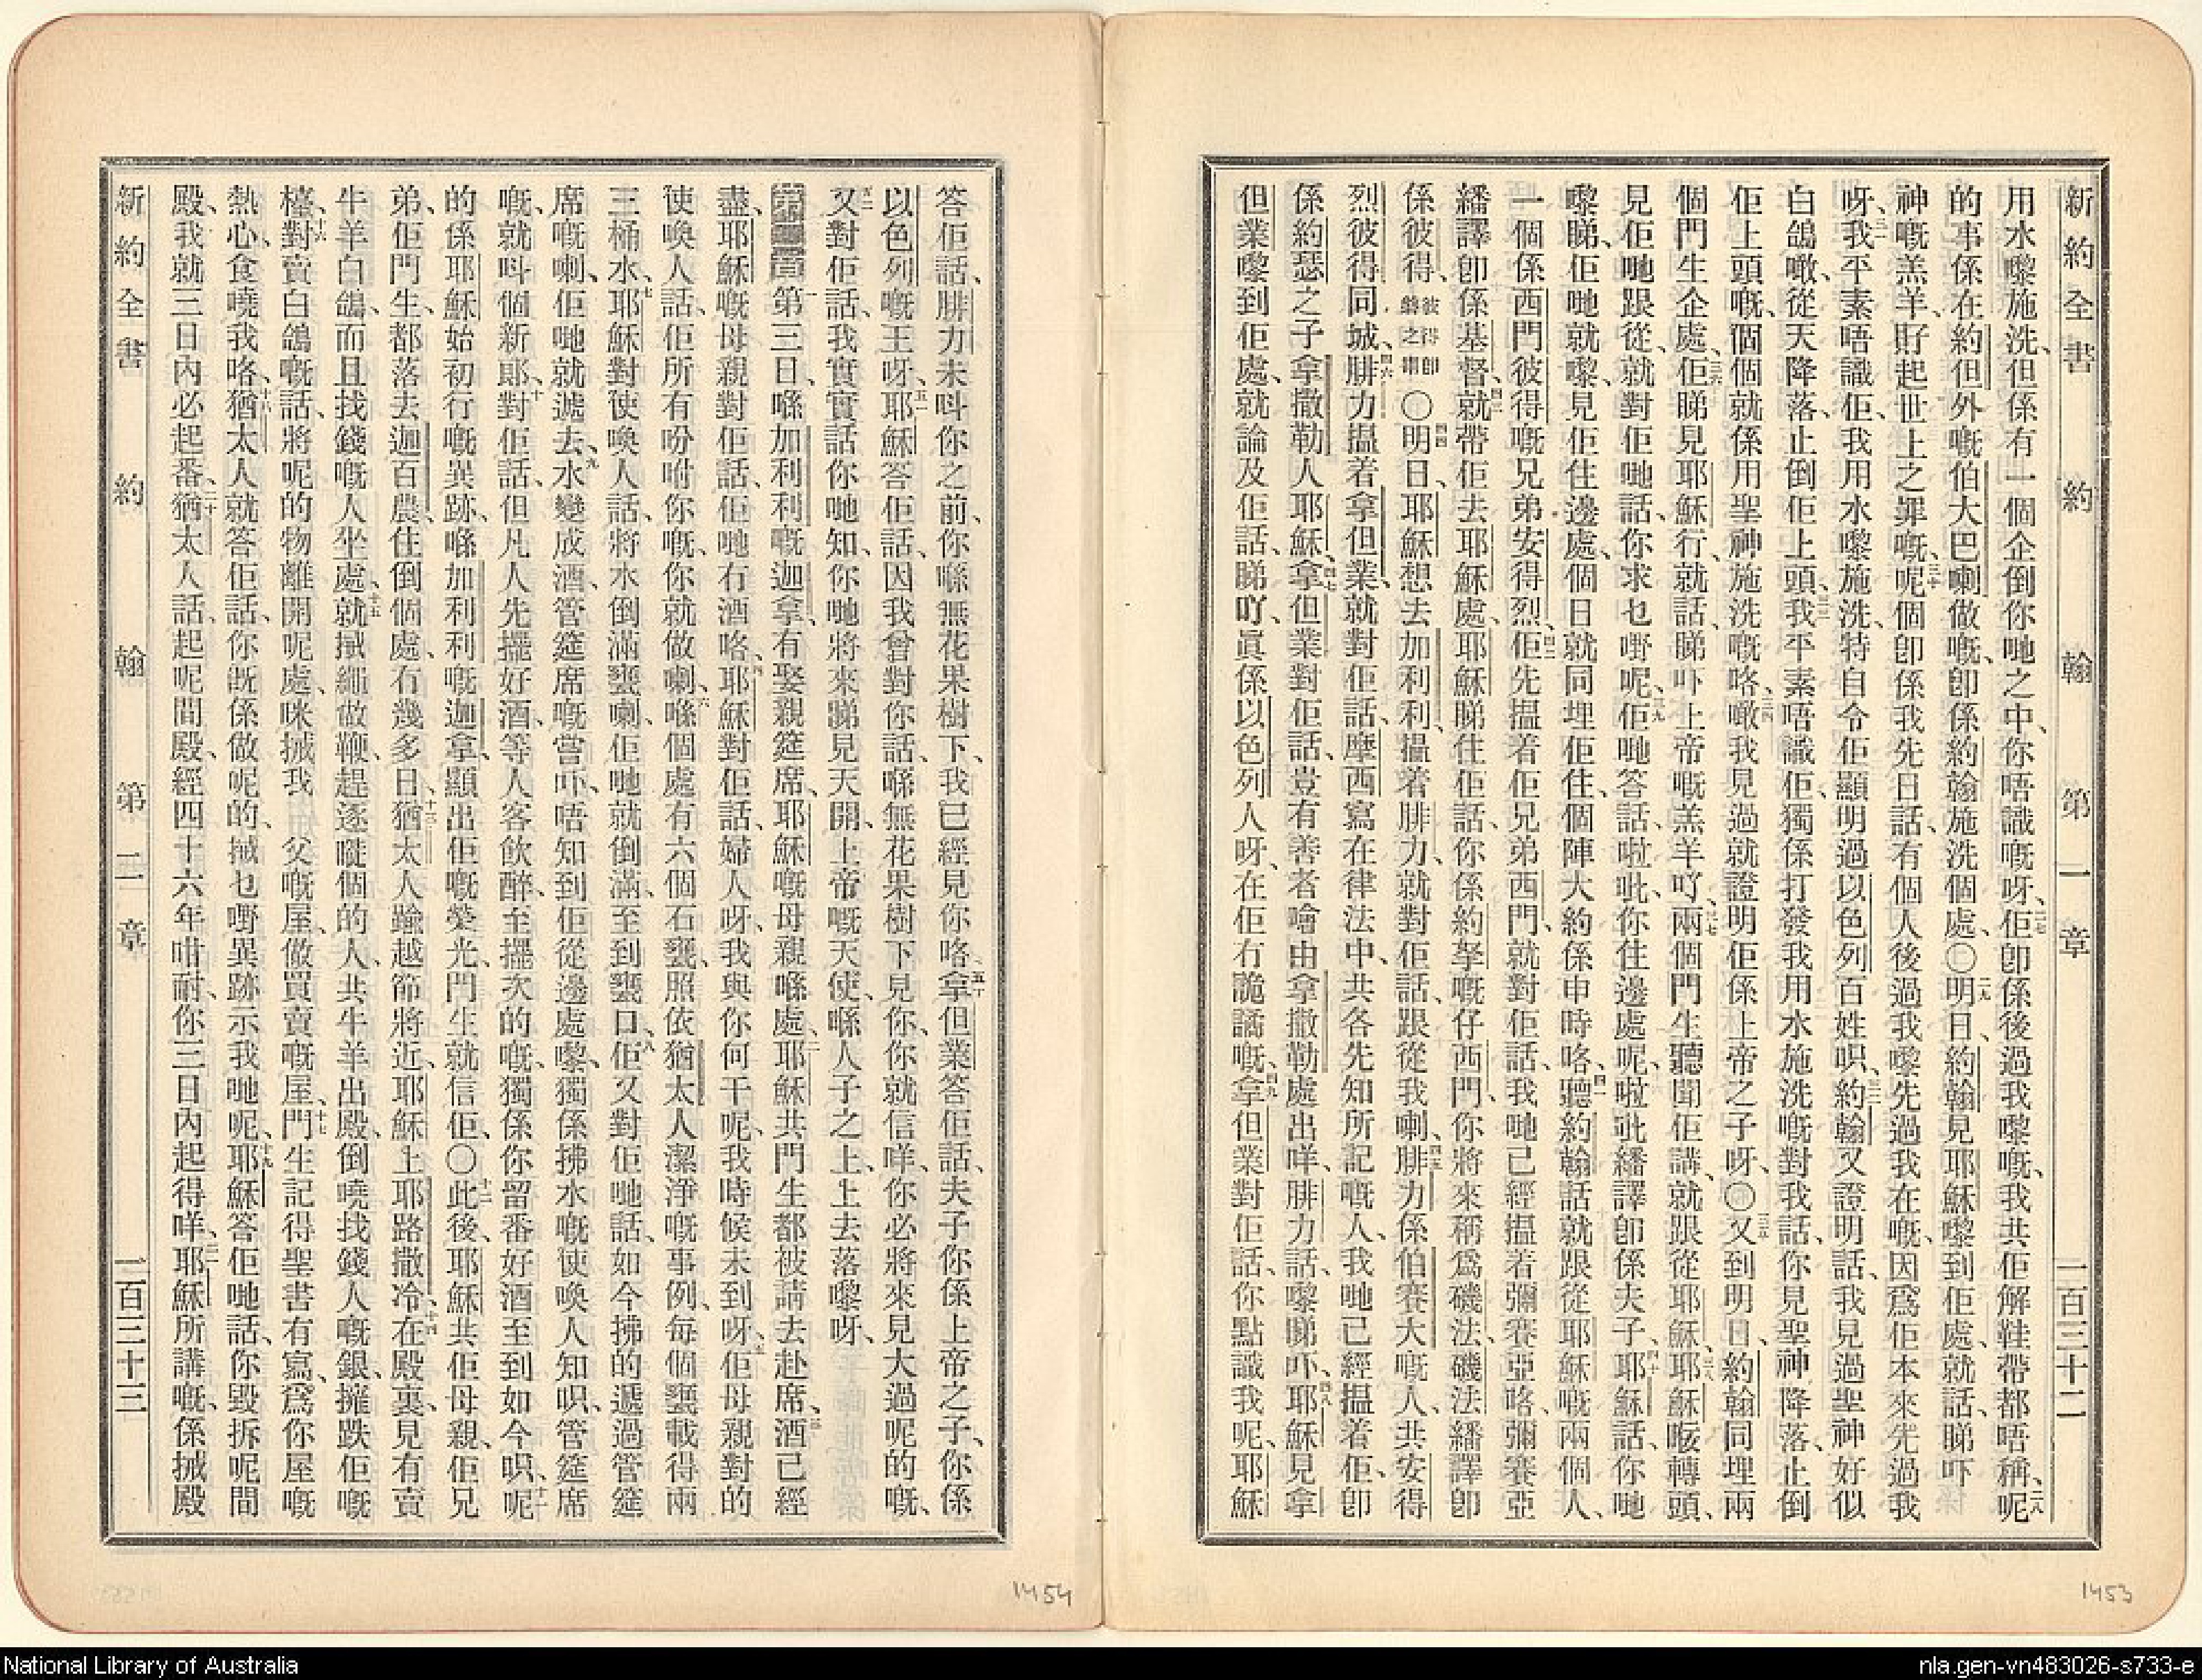 新約全書 約翰 第一章 一百三十二
用水嚟施洗、但係有一個企倒你哋之中、你唔識嘅呀、二七佢即係後過我嚟嘅、我共佢解鞋帶都唔稱、二八呢
的事係在約但外嘅伯大巴喇做嘅、即係約翰施洗個處、〇二九明日、約翰見耶穌嚟到佢處、就話、睇吓
神嘅羔羊、財起世上之罪嘅、三十呢個即係我先日話、有個人後過我嚟先過我在嘅、因爲佢本來先過我
呀、三一我平素唔識佢、我用水嚟施洗、特自令佢顯明過以色列百姓呮、三二約翰又證明話、我見過聖神好似
白鴿噉、從天降落、止倒佢上頭、三三我平素唔識佢、獨係打發我用水施洗嘅對我話、你見聖神降落、止倒
佢上頭嘅、個個就係用聖神施洗嘅咯、三四噉我見過就證明佢係上帝之子呀、〇三五又到明日、約翰同埋兩
個門生企處、三六佢睇見耶穌行、就話、睇吓上帝嘅羔羊吖、三七兩個門生聽聞佢講、就跟從耶穌、三八耶穌𠾍轉頭、
見佢哋跟從、就對佢哋話、你求乜嘢呢、三九佢哋答話、啦吡你住邊處呢、啦吡繙譯即係夫子、四十耶穌話、你哋
嚟睇、佢哋就嚟、見佢住邊處、個日就同埋佢住、個陣大約係申時咯、四一聽約翰話就跟從耶穌嘅兩個人、
一個係西門彼得嘅兄弟安得烈、四二佢先搵着佢兄弟西門、就對佢話、我哋已經搵着彌賽亞咯、彌賽亞
繙譯即係基督、四三就帶佢去耶穌處、耶穌睇住佢話、你係約拏嘅仔西門、你將來稱爲磯法、磯法繙譯即
係彼得、彼得即磐之謂〇四四明日、耶穌想去加利利、搵着腓力、就對佢話、跟從我喇、四五腓力係伯賽大嘅人、共安得
烈彼得同城、四六腓力搵着拿但業、就對佢話、摩西寫在律法中、共各先知所記嘅人、我哋已經搵着佢、即
係約瑟之子拿撒勒人耶穌、四七拿但業對佢話、豈有善者噲由拿撒勒處出咩、腓力話、嚟睇吓、四八耶穌見拿
但業嚟到佢處、就論及佢話、睇吖、眞係以色列人呀、在佢冇詭譎嘅、四九拿但業對佢話、你點識我呢、耶穌
答佢話、腓力未呌你之前、你喺無花果樹下、我已經見你咯、五十拿但業答佢話、夫子你係上帝之子、你係
以色列嘅王呀、五一耶穌答佢話、因我曾對你話、喺無花果樹下見你、你就信咩、你必將來見大過呢的嘅、
五二又對佢話、我實實話你哋知、你哋將來睇見天開、上帝嘅天使、喺人子之上、上去落嚟呀、
第二章 一第三日、喺加利利嘅迦拿、有娶親筵席、耶穌嘅母親喺處、二耶穌共門生都被請去赴席、三酒已經
盡、耶穌嘅母親對佢話、佢哋冇酒咯、四耶穌對佢話、婦人呀、我與你何干呢、我時候未到呀、五佢母親對的
使喚人話、佢所有吩咐你嘅、你就做喇、六喺個處有六個石甕、照依猶太人潔淨嘅事例、每個甕載得兩
三桶水、七耶穌對使喚人話、將水倒滿甕喇、佢哋就倒滿、至到甕口、八佢又對佢哋話、如今拂的遞過管筵
席嘅喇、佢哋就遞去、九水變成酒、管筵席嘅嘗吓、唔知到佢從邊處嚟、獨係拂水嘅使喚人知呮、管筵席
嘅、就呌個新郞、十對佢話、但凡人先擺好酒、等人客飮醉、至擺次的嘅、獨係你留番好酒至到如今呮、十一呢
的係耶穌始初行嘅異跡、喺加利利嘅迦拿、顯出佢嘅榮光、門生就信佢、〇十二此後、耶穌共佢母親、佢兄
弟、佢門生、都落去迦百農、住倒個處、冇幾多日、十三猶太人踰越節將近、耶穌上耶路撒冷、十四在殿裏、見有賣
牛羊白鴿、而且找錢嘅人坐處、十五就揻繩做鞭、趕逐𡁵個的人、共牛羊出殿、倒嘵找錢人嘅銀、擁跌佢嘅
檯、十六對賣白鴿嘅話、將呢的物離開呢處、咪揻我 父嘅屋、做買賣嘅屋、十七門生記得聖書有寫、爲你屋嘅
熱心、食嘵我咯、十八猶太人就答佢話、你旣係做呢的、揻乜嘢異跡示我哋呢、十九耶穌答佢哋話、你毀拆呢間
殿、我就三日內必起番、二十猶太人話、起呢間殿、經四十六年咁耐、你三日內起得咩、二一耶穌所講嘅、係揻殿
新約全書 約翰 第二章 一百三十三
1454
1453
National Library of Australia
nla.gen-vn483026-s733-e